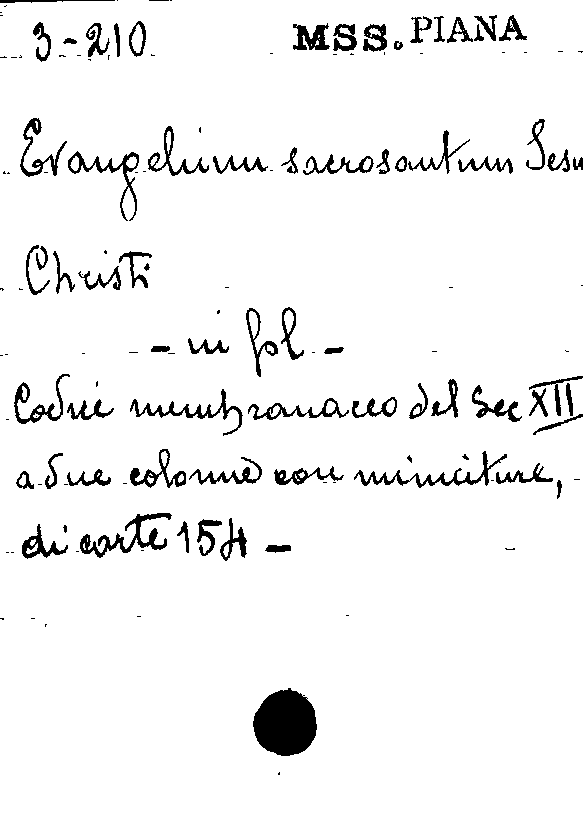 3-210 MSS. PIANA
Evangelium sacrosantum Jesu
Christi
- in fol -
Codice membranaceo del Sec XII
a due colonne con miniature,
di carte 154 -